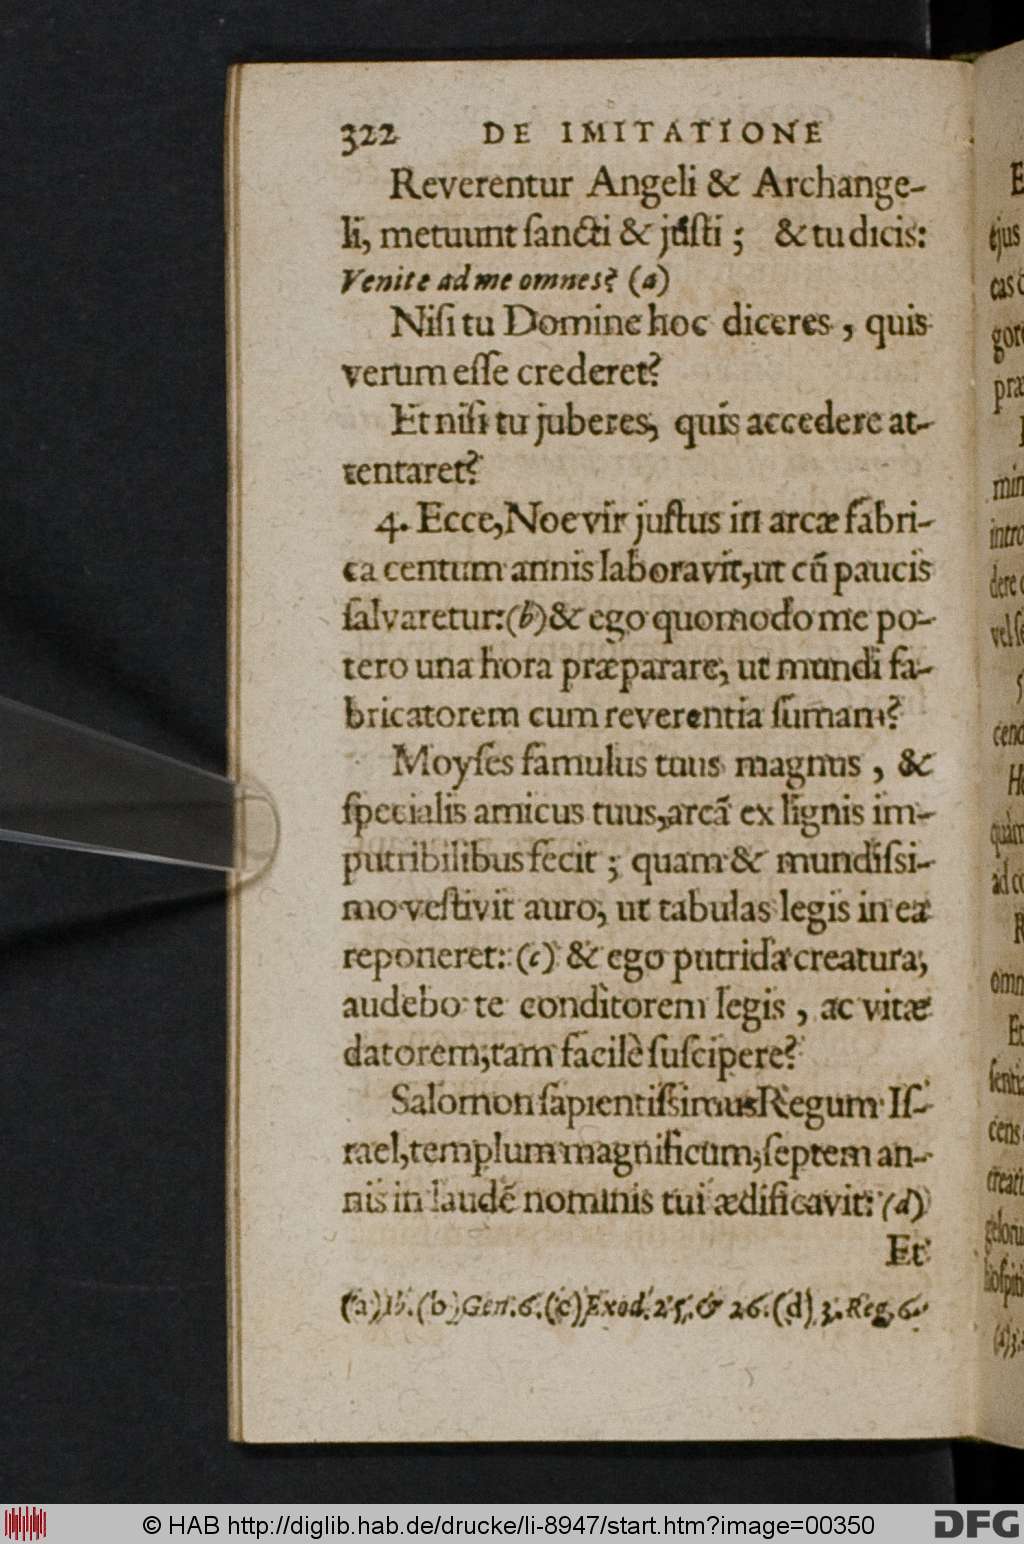 322 DE IMITATIONE
Reverentur Angeli & Archange-
li, metuunt ſancti & juſti ; & tu dicis:
Venite ad me omnes? (a)
Niſi tu Domine hoc diceres , quis
verum eſſe crederet?
Et niſi tu juberes, quis accedere at-
tentaret?
4. Ecce, Noe vir juſtus in arcæ fabri-
ca centum annis laboravit, ut cū paucis
ſalvaretur: (b) & ego quomodo me po-
tero una hora præparare, ut mundi fa-
bricatorem cum reverentia ſumam?
Moyſes famulus tuus magnus , &
ſpecialis amicus tuus, arcā ex lignis im-
putribilibus fecit ; quam & mundiſsi-
mo veſtivit auro, ut tabulas legis in ea
reponeret: (c) & ego putrida creatura,
audebo te conditorem legis , ac vitæ
datorem, tam facilè ſuſcipere?
Salomon ſapientiſsimus Regum Iſ-
rael, templum magnificum, ſeptem an-
nis in laudē nominis tui ædificavit: (d)
Et
(a) Ib. (b) Gen. 6. (c) Exod. 25. & 26. (d) 3. Reg, 6.
ejus
cas
gor
præ
min
intro
dere
vel ſe
5
cend
He
quàm
ad co
R
omn
Et
ſentia
cens
creati
geloru
hoſpiti
© HAB http://diglib.hab.de/drucke/li-8947/start.htm?image=00350
DFG